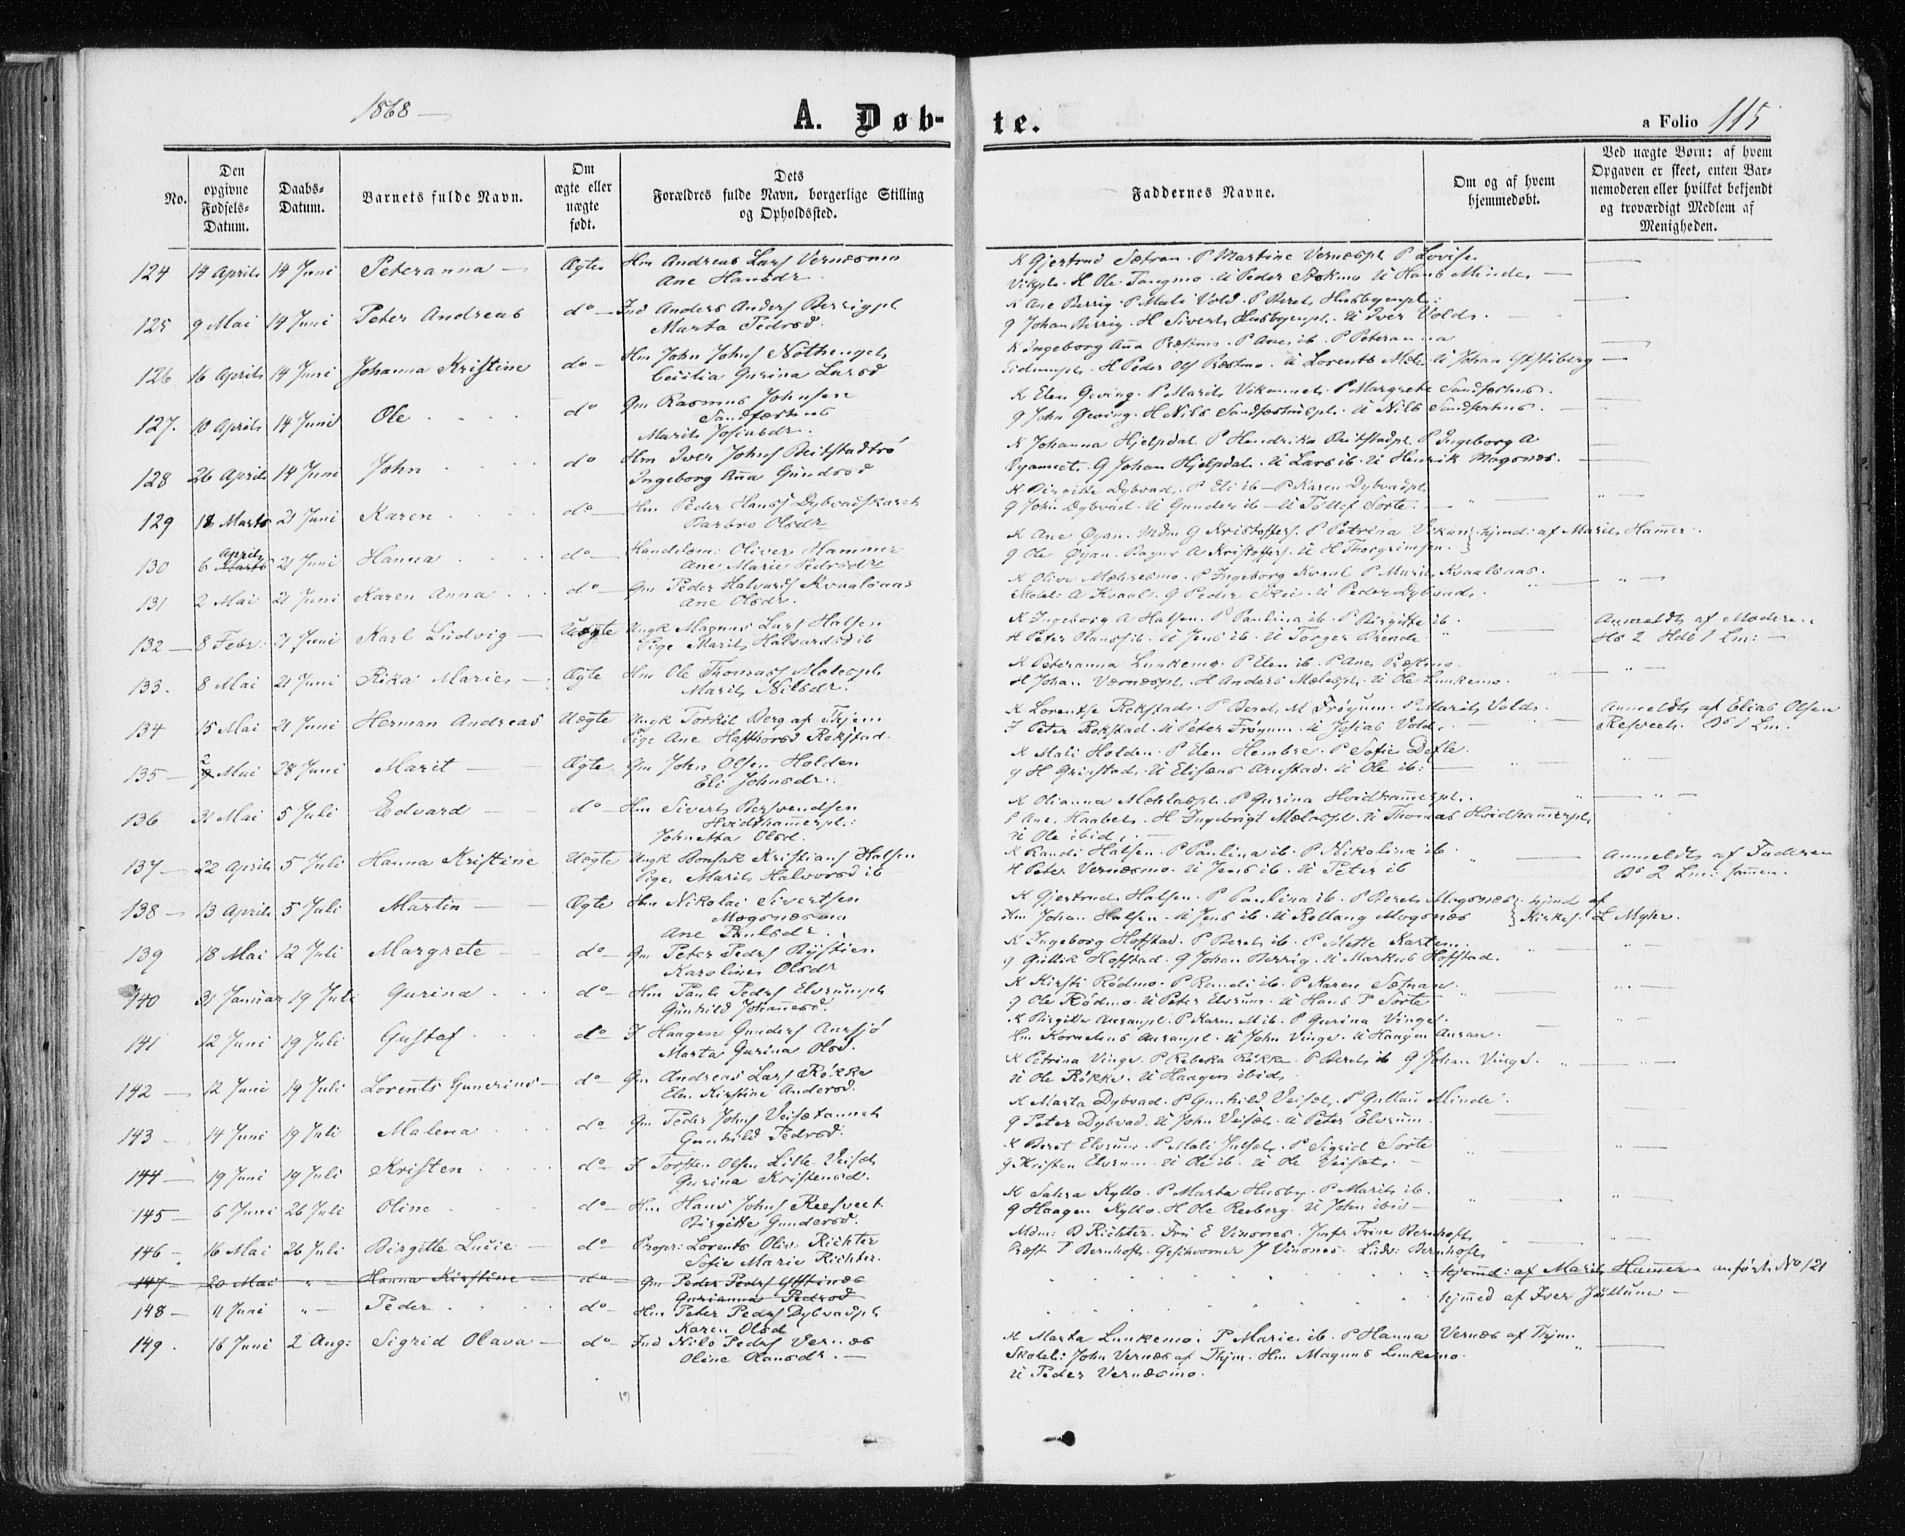 1868 —
A. Døb-
te.
a Folio 115
No.
Den opgivne Fødsels-Datum.
Daabs-Datum.
Barnets fulde Navn.
Om ægte eller uægte født.
Dets Forældres fulde Navn, borgerlige Stilling og Opholdssted.
Faddernes Navne.
Om og af hvem hjemmedøbt.
Ved uægte Børn: af hvem Opgaven er skeet, enten Barnemoderen eller hvilket bekjendt og troværdigt Medlem af Menigheden.
124 14 April 14 Juni Peteranna — Ægte Hm Andreas Lars Vernæsmo
Ane Hansdr
K Gjertrud Sætran. P Martine Vernæspl P Lovise
H Ole Tangmo. U Peder Stokmo U Hans Minde
125 9 Mai 14 Juni Peter Andreas do Ind Anders Anders Berrigpl
Marta Pedrsd.
K Ane Berrig. P Mali Vold. P Beret Husbyenpl.
G Johan Berrig. H Sivert Husbyenpl. U Iver Vold.
126 16 April 14 Juni Johanna Kristine do Hm John Johns
Cecilia Gurina Larsd
K Ingeborg Aña Ræstmo. P Ane ib. P Peteranna
H Peder Ols Ræstmo. U Lorents Mæle U Johan
127. 10 April 14 Juni Ole do Gm Rasmus Johnsen
Sandfærhus
Marit Josiasdr.
K Elen Geving. P Marit Vikannet. P Margrete Sandfærhus.
G John Geving. H Nils Sandfærhuspl. U Nils Sandfærhus.
128 26 April 14 Juni John do Hm Iver Johns Beitstadtrø
Ingeborg Aña Gundrsd
K Johanna Hjelpdal P Hendrika Beitstadpl. P Ingeborg A
G Johan Hjelpdal. U Lars ib. U Henrik Mogsnæs.
129 18 Marts 21 Juni Karen do Hm Peder Hans Dybvadskaret
Barbro Olsdr
K Birgitte Dybvad. P Eli ib — P Karen Dybvadpl.
G John Dybvad. U Gunder ib — U Tollef Sorte.
130 6 April 21 Juni Hanna do Handelsm: Oliver Hammer
Ane Marie Pedrsdr
K Ane Øyan. Mdm G Kristoffers. P Petrina Vikan hjmd: af Marit Hamer.
G Ole Øyan. A Kristoffers. U H Thorgrimsen.
131 2 Mai 21 Juni Karen Anna do Gm Peder Halvards Kvaalsaas
Ane Olsdr.
K Olive Mæhresmo. P Ingeborg Kvaal P Marie Kvaalsaas.
Skolel: A Kvaal. G Peder Skei. U Peder Dybvad.
132 — 8 Febr: 21 Juni Karl Ludvig — Uægte Ungk Magnus Lars Halsen
Pige Marit Halvardsd ib
K Ingeborg A Halsen. P Paulina ib. P Birgitte ib.
H Peter Hans ib. U Jens ib. U Torger Brende
Anmeldt af Moderen
Hs 2 Hds 1 Lm: —
133. 8 Mai 21 Juni Rika Marie — Ægte Hm Ole Thomas Mælespl
Marit Nilsdr.
K Peteranna Lunkemo. P Elen ib. P Ane Ræstmo.
H Johan Værnæspl. H Anders Mælespl. U Ole Lunkemo.
134 15 Mai 21 Juni Herman Andreas Uægte Ungk Torkil Berg af Thjem
Pige Ane Hafthorsd Rokstad.
K Lorentse Rokstad. P Beret M Frøyum. P Marit Vold.
I Peter Rokstad. U Peter Frøyum. U Josias Vold.
Anmeldt af Elias Olsen
Ræsveet. Bs 1 Lm.
135 — 2 Mai 28 Juni Marit — Ægte Gm John Olsen Holden
Eli Johnsdr.
K Mali Holden. P Elen Hembre. P Sofie Defle.
G H Grinstad. U Elisæus Arnstad. U Ole ib:
136 31 Mai 5 Juli Edvard do Hm Sivert Bersvendsen
Hvidthamerpl:
Johnetta Olsd.
K Olianna Mæhlaspl. P Gurina Hvidthamerpl.
P Ane Haabet. H Ingebrigt Mælespl. U Thomas Hvidhamerpl.
U Ole ibid.
137 — 22 April 5 Juli Hanna Kristine Uægte Ungk Bonsak Kristians Halsen
Pige Marit Halvorsd ib
K Randi Halsen. P Paulina ib. P Nikolina ib.
H Peter Vernæsmo. U Jens ib. U Peter ib
Anmeldt af Faderen
Bs 2 Lm: samen.
138 — 13 April 5 Juli Martin — Ægte Hm Nikolai Sivertsen
Mogsnæsmo
Ane Paulsdr.
K Gjertrud Halsen. P Paulina ib. P Beret Mogsnæs hjmd af
Hm Johan Halsen. U Jens ib. U Kellang Mogsnæs Kirkes: L Myhr.
139 18 Mai 12 Juli Margrete — do Gm Peter Peders
Karoline Olsdr
K Ingeborg Hofstad. P Beret ib. P Mette Kartem.
G Gullik Hofstad. G Johan Berrig. U Markus Hofstad.
140 31 Januar 19 Juli Gurina do Hm Paul Peders Elvrumpl
Gunhild Johañesd.
K Kirsti Rødmo. P Randi ib. P Karen Sætnan.
G Ole Rødmo. U Peter Elvrum. U Hans P Sorte
141 12 Juni 19 Juli Gustaf do I Haagen Gunders Aursjø
Marta Gurina Olsd.
K Birgitte Auranpl. P Karen M ib. P Gurina Vinge.
Hm Kornelius Auranpl. U John Vinge. U Haagen Auran.
142 — 12 Juni 19 Juli Lorents Gunerius — do Gm Andreas Lars Røkke
Elen Kirstine Andersd.
K Petrina Vinge. P Rebeka Røkke. P Beret ib G Johan Vinge.
U Ole Røkke. U Haagen ibid.
143 14 Juni 19 Juli Malena do Gm Peder Johns Veisætannet
Gunhild Pedrsd.
K Marta Dybvad. P Gunhild Veisæt. P Gullau Minde.
G Peter Dybvad. U John Veisæt. U Peter Elvrum.
144 — 19 Juni 19 Juli Kristen do I Torsten Olsen Lille-Veisæt
Gurina Kristensd.
K Beret Elvrum. P Mali Julset. P Sigrid Sorte
G Kristen Elvrum. U Ole ib. U Ole Veisæt.
145 — 6 Juni 26 Juli Oline do Hm Hans Johns Ræsveet
Birgitte Gundersd.
K Sahra Kyllo. P Marta Husby. P Marit ib.
G Haagen Kyllo. H Ole Reeberg. U John ibid —
146 — 16 Mai 26 Juli Birgitte Lucie — do Propr: Lorents Oliv: Richter
Sofie Marie Richter.
Mdm: B Richter. Frú E Visones. Jmfr Trine Bernhoft
Præst T Bernhoft. Geschworner J Visones. Ludv: Bernhoft
147 — 20 Mai " Hanna Kirstine do Gm Peder Peders
Gurianna Pedrsd
hjemd: af Marit Hamer — anført No 121
148 — 11 Juni " Peder do Hm Peter Peders Dybvadpl
Karen Olsd
hjmed af Iver Juttune —
149. 16 Juni 2 Aug: Sigrid Olava — do Ind Nils Peders Vernæs
Oline Olausdr. —
K Marta Lunkemo. P Marie ib. P Hanna Vernæs af Thjm.
Skolel: John Vernæs af Thjm. Hm Magnus Lunkemo.
U Peder Vernæsmo.